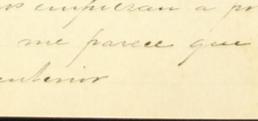 empiezan a
me parece que
anterior